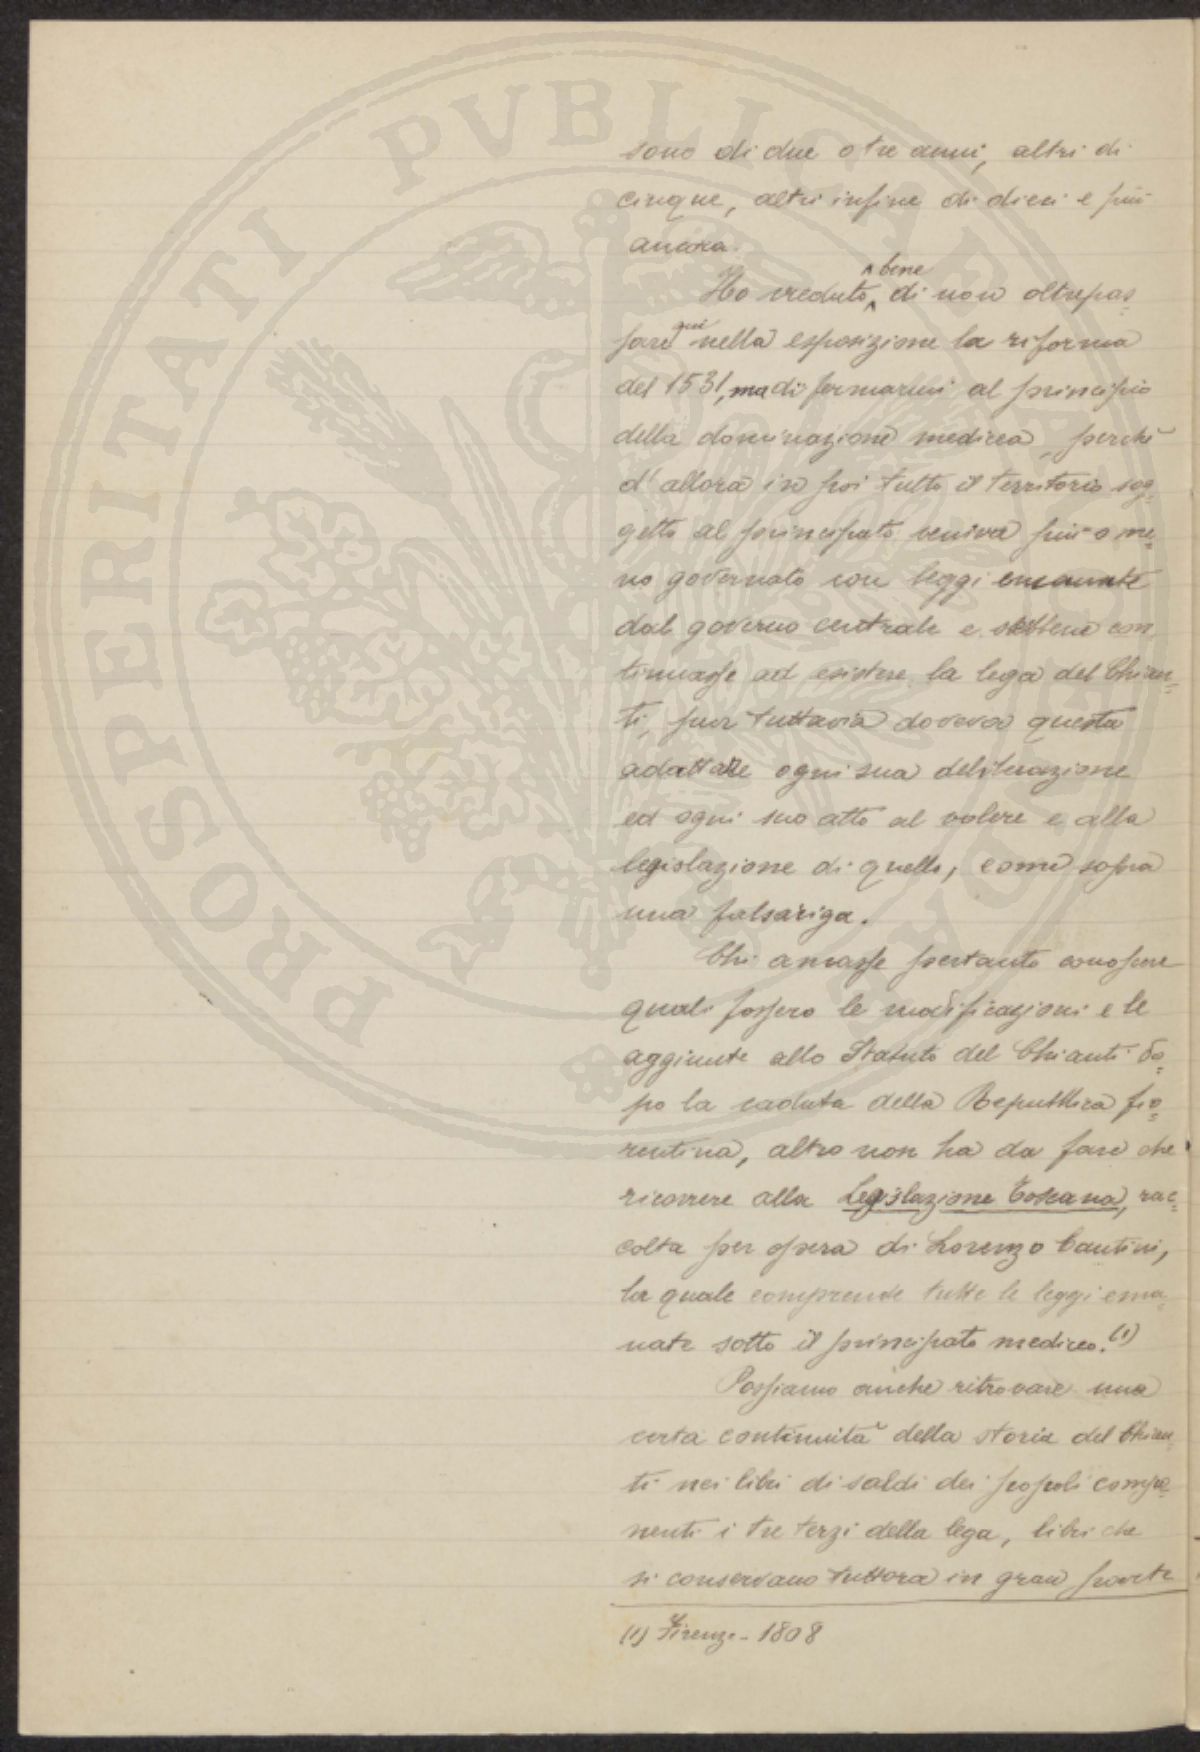 sono di due o tre anni, altri di
cinque, altri infine di dieci e più
ancora.
Ho creduto bene di non oltrepas-
sare qui nella esposizione la riforma
del 1531, ma di fermarmi al principio
della dominazione medicea, perchè
d'allora in poi tutto il territorio sog-
getto al principato veniva più o me-
no governato con leggi emanate
dal governo centrale e sebbene con
tinuasse ad esistere la lega del Chian-
ti, pur tuttavia doveva questa
adattare ogni sua deliberazione
ed ogni suo atto al volere e alla
legislazione di quello, come sopra
una falsariga.
Chi amasse pertanto conoscere
quali fossero le modificazioni e le
aggiunte allo Statuto del Chianti do-
po la caduta della Repubblica fio-
rentina, altro non ha da fare che
ricorrere alla Legislazione Toscana, rac-
colta per opera di Lorenzo Cantini,
la quale comprende tutte le leggi ema-
nate sotto il principato mediceo. (1)
Possiamo anche ritrovare una
certa continuità della storia del Chian-
ti nei libri di saldi dei popoli compo-
nenti i tre terzi della lega, libri che
si conservano tuttora in gran parte
(1) Firenze - 1808
PROSPERITATI PVBLICAE